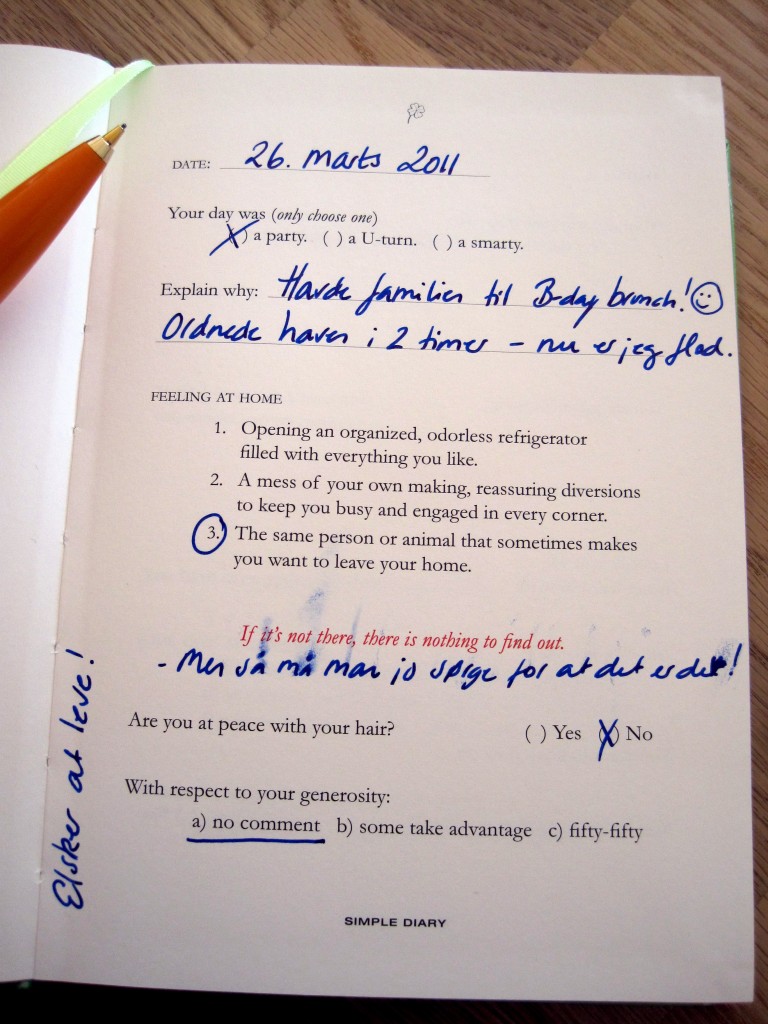 DATE: 26. marts 2011
Your day was (only choose one)
(X) a party. ( ) a U-turn. ( ) a smarty.
Explain why: Havde familien til B-day brunch! ☺
Ordnede haven i 2 timer – nu er jeg flad.
FEELING AT HOME
1. Opening an organized, odorless refrigerator
filled with everything you like.
2. A mess of your own making, reassuring diversions
to keep you busy and engaged in every corner.
3. The same person or animal that sometimes makes
you want to leave your home.
If it's not there, there is nothing to find out.
- Men så må man jo sørge for at det er der!
Are you at peace with your hair? ( ) Yes (X) No
With respect to your generosity:
a) no comment b) some take advantage c) fifty-fifty
Elsker at leve!
SIMPLE DIARY